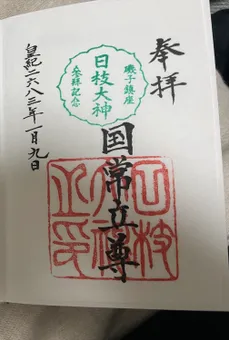 奉拝
磯子鎮座
日枝大神
参拝記念
国常立尊
皇紀二六八三年一月九日